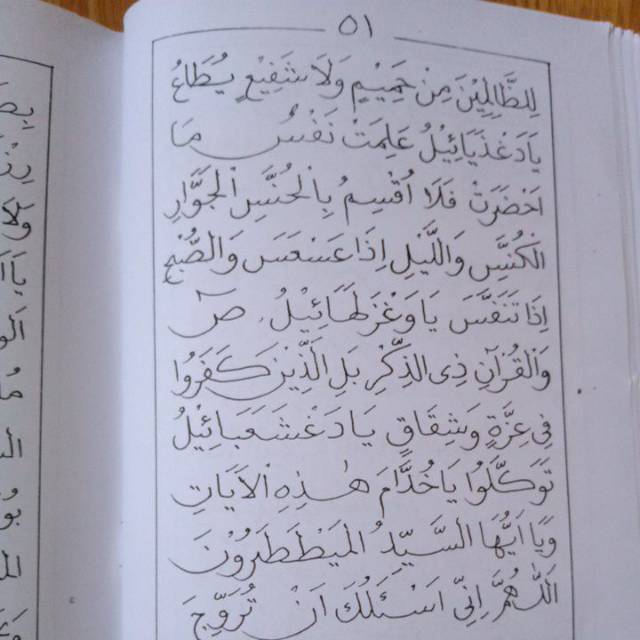 ٥١
لِلظَّالِمِيْنَ مِنْ حَمِيْمٍ وَلَا شَفِيْعٍ يُطَاعُ
يَا دَغْنَيَائِيْلُ عَلِمَتْ نَفْسٌ مَا
اَحْضَرَتْ فَلَا اُقْسِمُ بِالْخُنَّسِ الْجَوَارِ
الْكُنَّسِ وَاللَّيْلِ اِذَا عَسْعَسَ وَالصُّبْحِ
اِذَا تَنَفَّسَ يَا وَغْرَطَائِيْلُ صٓ
وَالْقُرْاٰنِ ذِى الذِّكْرِ بَلِ الَّذِيْنَ كَفَرُوْا
فِى عِزَّةٍ وَشِقَاقٍ يَا دَغْشَعَيَائِيْلُ
تَوَكَّلُوْا يَا خُدَّامَ هٰذِهِ الْاَيَاتِ
وَيَا اَيُّهَا السَّيِّدُ الْمَيْطَطَرُوْنَ
اَللّٰهُمَّ اِنِّى اَسْئَلُكَ اَنْ تُرَوِّحَ